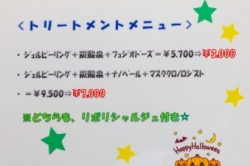 <トリートメントメニュー>
・ジェルピーリング+炭酸泉+フェジオドーズ=￥5.700⇒￥3,000
・ジェルピーリング+炭酸泉+ナノペール+マスククロノロジスト
・=￥9.500⇒￥7,000
※どちらも、リポリシャルジュ付き☆
Happy Halloween